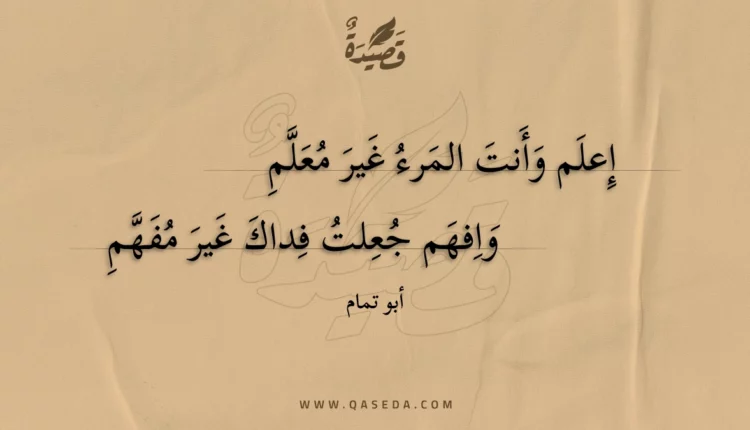 قَصِيدَةٌ
إِعلَم وَأَنتَ المَرءُ غَيرَ مُعَلَّمِ
وَاِفهَم جُعِلتُ فِداكَ غَيرَ مُفَهَّمِ
أبو تمام
WWW.QASEDA.COM